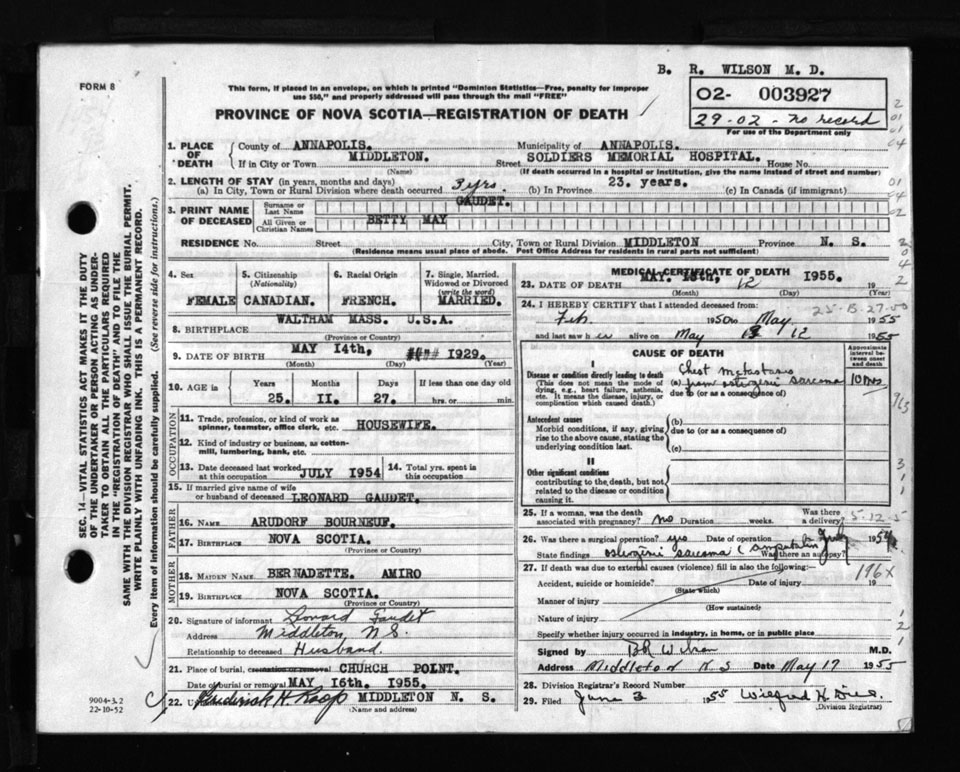 B. R. WILSON M. D.
FORM 8
This form, if placed in an envelope, on which is printed "Dominion Statistics—Free, penalty for improper
use $50," and properly addressed will pass through the mail "FREE"
02- 003927
29-02 - no record
For use of the Department only
PROVINCE OF NOVA SCOTIA—REGISTRATION OF DEATH
1. PLACE OF DEATH
County of ANNAPOLIS. Municipality of ANNAPOLIS.
If in City or Town MIDDLETON. Street SOLDIERS MEMORIAL HOSPITAL. House No.
(Name) (If death occurred in a hospital or institution, give the name instead of street and number)
2. LENGTH OF STAY (in years, months and days)
(a) In City, Town or Rural Division where death occurred 3 yrs. (b) In Province 23. years. (c) In Canada (if immigrant)
3. PRINT NAME OF DECEASED
Surname or Last Name GAUDET.
All Given or Christian Names BETTY MAY
RESIDENCE No. Street City, Town or Rural Division MIDDLETON Province N. S.
(Residence means usual place of abode. Post Office Address for residents in rural parts not sufficient)
4. Sex FEMALE
5. Citizenship (Nationality) CANADIAN.
6. Racial Origin FRENCH.
7. Single, Married, Widowed or Divorced (write the word) MARRIED.
8. BIRTHPLACE WALTHAM MASS. U.S.A.
(Province or Country)
9. DATE OF BIRTH MAY 14th, 1929.
(Month) (Day) (Year)
10. AGE in Years Months Days If less than one day old
25. II. 27. hrs. or min.
OCCUPATION
11. Trade, profession, or kind of work as spinner, teamster, office clerk, etc. HOUSEWIFE.
12. Kind of industry or business, as cotton-mill, lumbering, bank, etc.
13. Date deceased last worked at this occupation JULY 1954
14. Total yrs. spent in this occupation
15. If married give name of wife or husband of deceased LEONARD GAUDET.
FATHER
16. NAME ARUDORF BOURNEUF.
17. BIRTHPLACE NOVA SCOTIA.
(Province or Country)
MOTHER
18. MAIDEN NAME BERNADETTE. AMIRO
19. BIRTHPLACE NOVA SCOTIA.
(Province or Country)
20. Signature of informant Leonard Gaudet
Address Middleton, N.S.
Relationship to deceased Husband.
21. Place of burial, cremation or removal CHURCH POINT.
Date of burial or removal MAY 16th. 1955.
22. Frederick H. Roop MIDDLETON N. S.
(Name and address)
9004-3.2
22-10-52
SEC. 14—VITAL STATISTICS ACT MAKES IT THE DUTY
OF THE UNDERTAKER OR PERSON ACTING AS UNDER-
TAKER TO OBTAIN ALL THE PARTICULARS REQUIRED
IN THE "REGISTRATION OF DEATH" AND TO FILE THE
SAME WITH THE DIVISION REGISTRAR WHO SHALL ISSUE THE BURIAL PERMIT.
WRITE PLAINLY WITH UNFADING INK. THIS IS A PERMANENT RECORD.
Every item of information should be carefully supplied. (See reverse side for instructions.)
MEDICAL CERTIFICATE OF DEATH
23. DATE OF DEATH MAY. 12 1955.
(Month) (Day) (Year)
24. I HEREBY CERTIFY that I attended deceased from:
Feb. 1950 to May 1955
and last saw her alive on May 12 1955
CAUSE OF DEATH
Approximate interval between onset and death
I
Disease or condition directly leading to death
(This does not mean the mode of dying, e.g., heart failure, asthenia, etc. It means the disease, injury, or complication which caused death.)
(a) Chest metastasis from osteogenic sarcoma 10 mos
due to (or as a consequence of)
Antecedent causes
Morbid conditions, if any, giving rise to the above cause, stating the underlying condition last.
(b)
due to (or as a consequence of)
(c)
II
Other significant conditions
contributing to the death, but not related to the disease or condition causing it.
25. If a woman, was the death associated with pregnancy? no Duration weeks. Was there a delivery?
26. Was there surgical operation? yes Date of operation July 1954
State findings osteogenic sarcoma (amputation Was there an autopsy?
27. If death was due to external causes (violence) fill in also the following:— 196X
Accident, suicide or homicide? Date of injury 19
(State which)
Manner of injury
(How sustained)
Nature of injury
Specify whether injury occurred in industry, in home, or in public place
Signed by BR Wilson M.D.
Address Middleton N S Date May 17 1955
28. Division Registrar's Record Number
29. Filed June 3 1955
(Division Registrar)